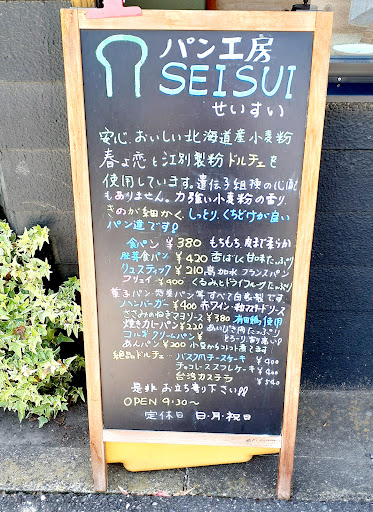 パン工房
SEISUI
せいすい
安心、おいしい北海道産小麦粉
春よ恋と江別製粉ドルチェを
使用しています。遺伝子組換の心配
もありません。力強い小麦粉の香り。
きめが細かく、しっとり、くちどけが良い
パン達です!!
食パン ¥380 もちもち、皮まで柔らか
胚芽食パン ¥420 香ばしく甘味たっぷり
リュスティック ¥210 高加水フランスパン
フリュイ ¥400 くるみとドライフルーツたっぷり
菓子パン・惣菜パン等すべて自家製です。
ハンバーガー ¥400 赤ワイン・粒マスタードソース
ささみのねぎマヨソース ¥380 使用
焼きカレーパン ¥220 あいびき肉たっぷり
コルネクリームパン
あんパン ¥200 小豆からコトコト煮てます
絶品ドルチェ バスク風チーズケーキ ¥400
チョコレートスフレケーキ ¥400
台湾カステラ ¥540
是非お立ち寄り下さい!!
OPEN 9:30~
定休日 日・月・祝日